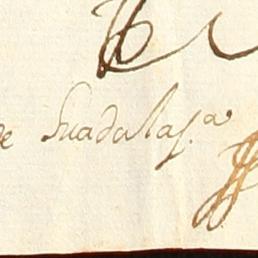 de Guadalax.ª